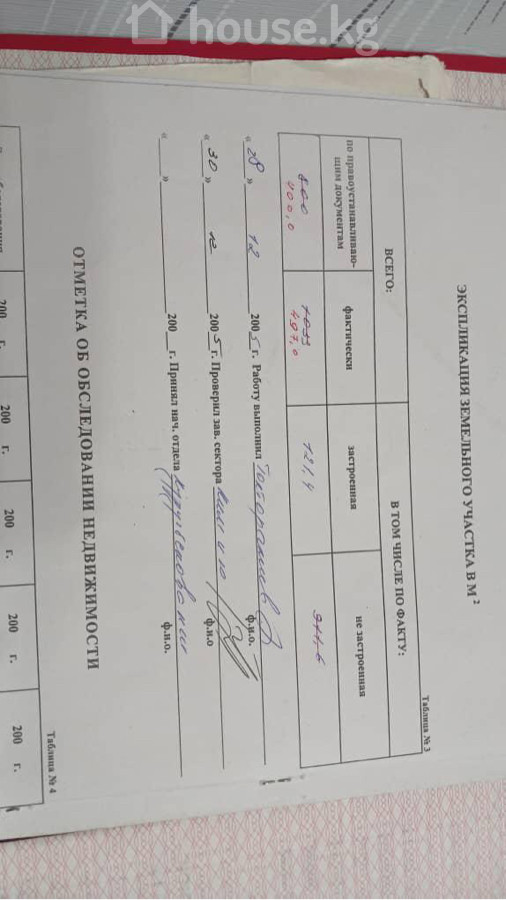 house.kg
ЭКСПЛИКАЦИЯ ЗЕМЕЛЬНОГО УЧАСТКА В М 2
Таблица № 3
ВСЕГО:
В ТОМ ЧИСЛЕ ПО ФАКТУ:
по правоустанавливаю-
щим документам
фактически
застроенная
не застроенная
800
400,0
1033
497,0
121,4
911,6
« 28 » 12 200 5 г. Работу выполнил ф.и.о.
« 30 » 12 200 5 г. Проверил зав. сектора ф.и.о
« » 200 г. Принял нач. отдела ф.и.о.
ОТМЕТКА ОБ ОБСЛЕДОВАНИИ НЕДВИЖИМОСТИ
Таблица № 4
200 г.
200 г.
200 г.
200 г.
200 г.